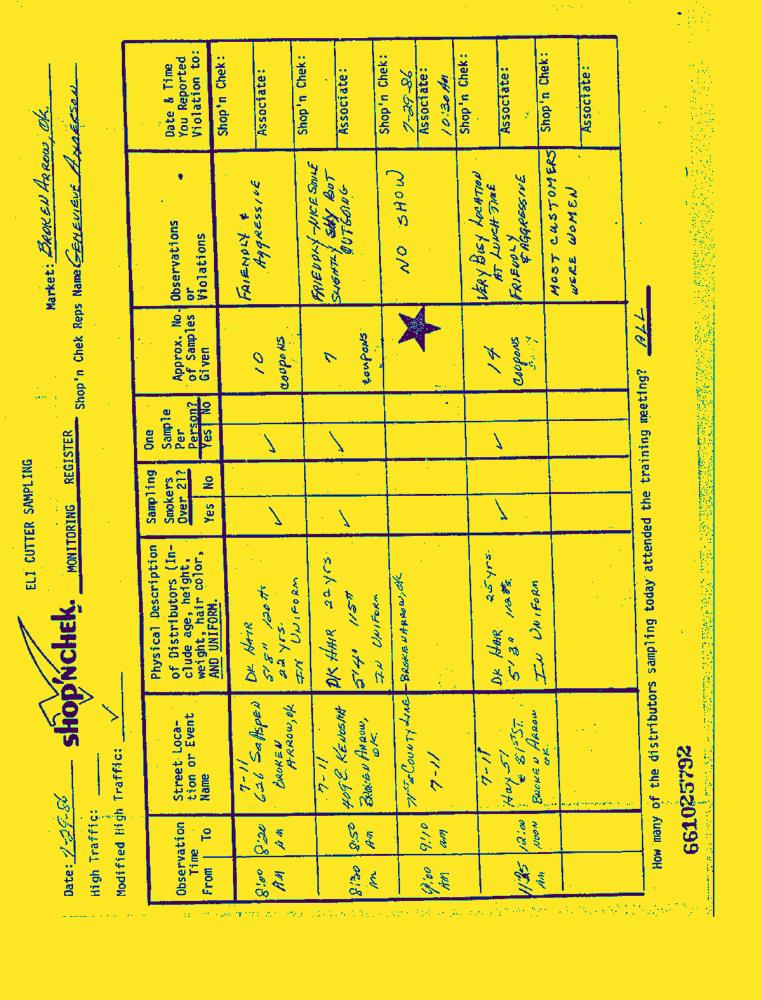 ELI CUTTER SAMPLING
Date: 7-29-86
shop'NCHEK. MONITORING REGISTER
Market: BROKEN ARROW, OK.
High Traffic:
Shop'n Chek Reps Name GENEVIEVE ANDERSON
Modified High Traffic: ✓
Observation Time
From To
Street Location or Event Name
Physical Description of Distributors (Include age, height, weight, hair color, AND UNIFORM.
Sampling Smokers Over 21?
Yes No
One Sample Per Person?
Yes No
Approx. No. of Samples Given
Observations or Violations
Date & Time You Reported Violation to:
8:00 AM 8:20 AM
7-11
626 So ASPEN
BROKEN
ARROW, OK
DK HAIR
5'8" 120 #s
22 YRS.
IN UNIFORM
✓
✓
10
COUPONS
FRIENDLY &
AGGRESSIVE
Shop'n Chek:
Associate:
8:30 8:50 AM
7-11
409 E. KENOSHA
BROKEN ARROW,
OK.
DK HAIR 22 YRS
5'4" 115#
IN UNIFORM
✓
✓
7
COUPONS
FRIENDLY-NICE SMILE
SLIGHTLY SHY BUT
OUTGOING
Shop'n Chek:
Associate:
9:00 AM 9:10 AM
71ST & COUNTY LINE - BROKEN ARROW, OK
7-11
NO SHOW
Shop'n Chek:
7-29-86
Associate:
10:30 AM
AM 12:00 NOON
7-11
Hwy 51
& 81ST ST.
BROKEN ARROW
OK.
DK HAIR 25 YRS.
5'3"
IN UNIFORM
✓
✓
14
COUPONS
VERY BUSY LOCATION
AT LUNCH TIME
FRIENDLY
& AGGRESSIVE
Shop'n Chek:
Associate:
MOST CUSTOMERS
WERE WOMEN
Shop'n Chek:
Associate:
How many of the distributors sampling today attended the training meeting? ALL
661025792